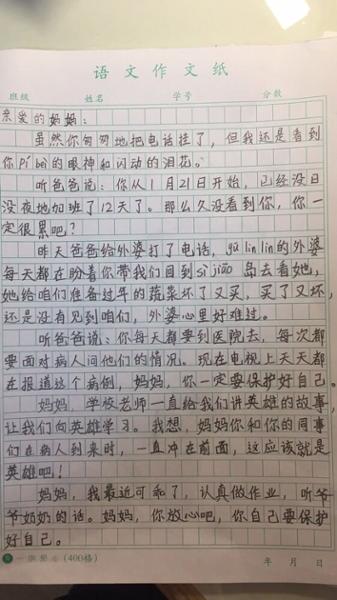 语文作文纸
班级 姓名 学号 分数
亲爱的妈妈：
虽然你匆匆地把电话挂了，但我还是看到
你pí bèi的眼神和闪动的泪花。
听爸爸说：你从1月21日开始，已经没日
没夜地加班了12天了。那么久没看到你，你一
定很累吧？
昨天爸爸给外婆打了电话，gū lín lín的外婆
每天都在盼着你带我们回到sì jiāo 岛去看她，
她给咱们准备过年的蔬菜坏了又买，买了又坏，
还是没有见到咱们，外婆心里好难过。
听爸爸说：你每天都要到医院去，每次都
要面对病人问他们的情况。现在电视上天天都
在报道这个病例，妈妈，你一定要保护好自己。
妈妈，学校老师一直给我们讲英雄的故事，
让我们向英雄学习。我想，妈妈你和你的同事
们在病人到来时，一直冲在前面，这应该就是
英雄吧！
妈妈，我最近可乖了，认真做作业，听爷
爷奶奶的话。妈妈，你放心吧，你自己要保护
好自己。
(400格) 年 月 日